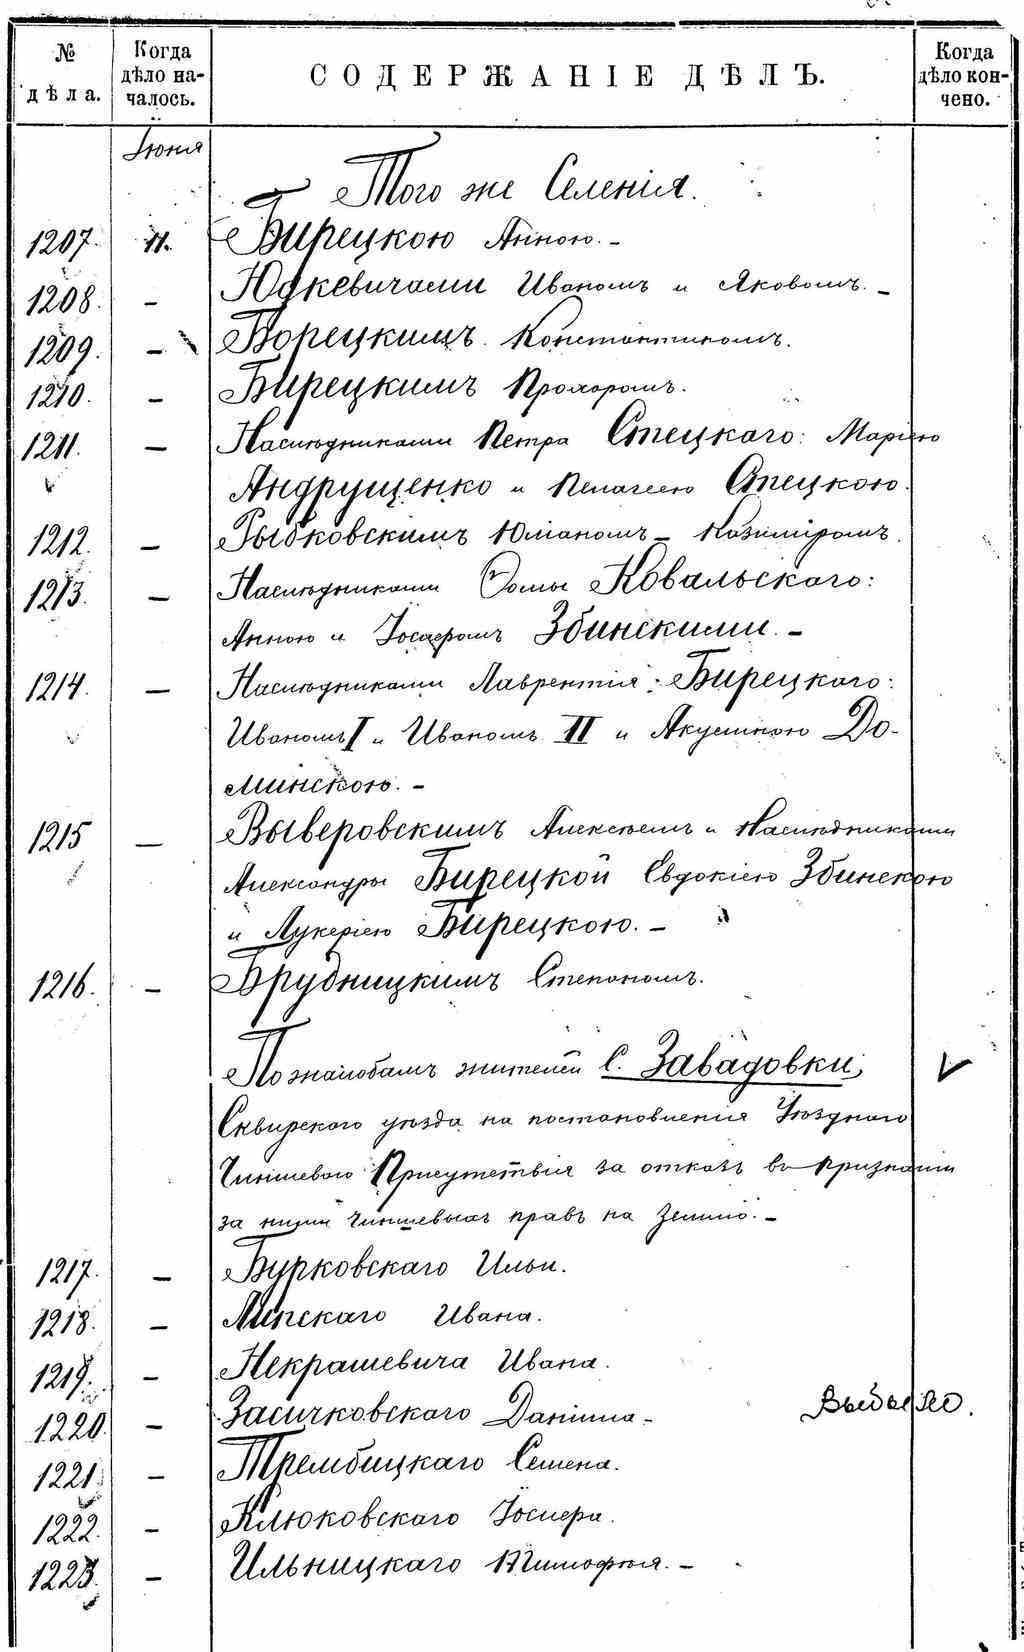 № дѣла.
Когда дѣло на-
чалось.
СОДЕРЖАНІЕ ДѢЛЪ.
Когда дѣло кон-
чено.
Іюня
Того же Селенія.
1207. 11. Бирецкою Анною. -
1208. - Юдкевичами Иваномъ и Яковомъ. -
1209. - Борецкимъ Константиномъ.
1210. - Бирецкимъ Прохоромъ.
1211. - Наслѣдниками Петра Стецкаго: Маріею
Андрущенко и Пелагеею Стецкою.
1212. - Рыбковскимъ Юліаномъ - Казиміромъ.
1213. - Наслѣдниками Ѳомы Ковальскаго:
Анною и Іосифомъ Збинскими. -
1214. - Наслѣдниками Лаврентія: Бирецкаго:
Иваномъ I и Иваномъ II и Акулиною До-
минскою. -
1215 - Выверовскимъ Алексѣемъ и Наслѣдниками
Александры Бирецкой Евдокіею Збинскою
и Лукеріею Бирецкою. -
1216. - Брудницкимъ Степаномъ.
По жалобамъ жителей С. Завадовки,
Сквирскаго уѣзда на постановленія Уѣзднаго
Чиншеваго Присутствія за отказъ въ признаніи
за ними чиншевыхъ правъ на землю. -
1217. - Бурковскаго Ильи.
1218. - Липскаго Ивана.
1219. - Некрашевича Ивана.
1220. - Засичковскаго Даніила - Выбыло.
1221. - Трембицкаго Семена.
1222. - Клюковскаго Іосифа.
1223. - Ильницкаго Тимофѣя. -